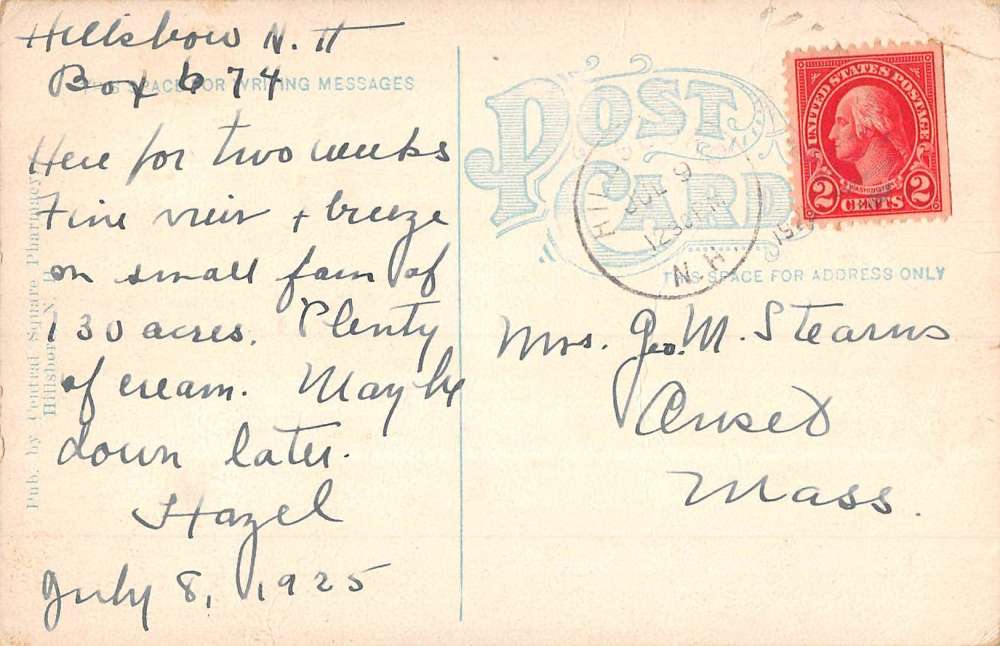 Hillsboro N. H
Box 674
THIS SPACE FOR WRITING MESSAGES
Here for two weeks
Fine view + breeze
on small farm of
130 acres. Plenty
of cream. May be
down later.
Hazel
July 8, 1925
Pub. by Central Square Pharmacy,
Hillsboro, N. H.
POST CARD
HILL
JUL 9
12 30 PM
N.H.
UNITED STATES POSTAGE
WASHINGTON
2 CENTS 2
THIS SPACE FOR ADDRESS ONLY
Mrs. Geo. M. Stearns
Onset
Mass.